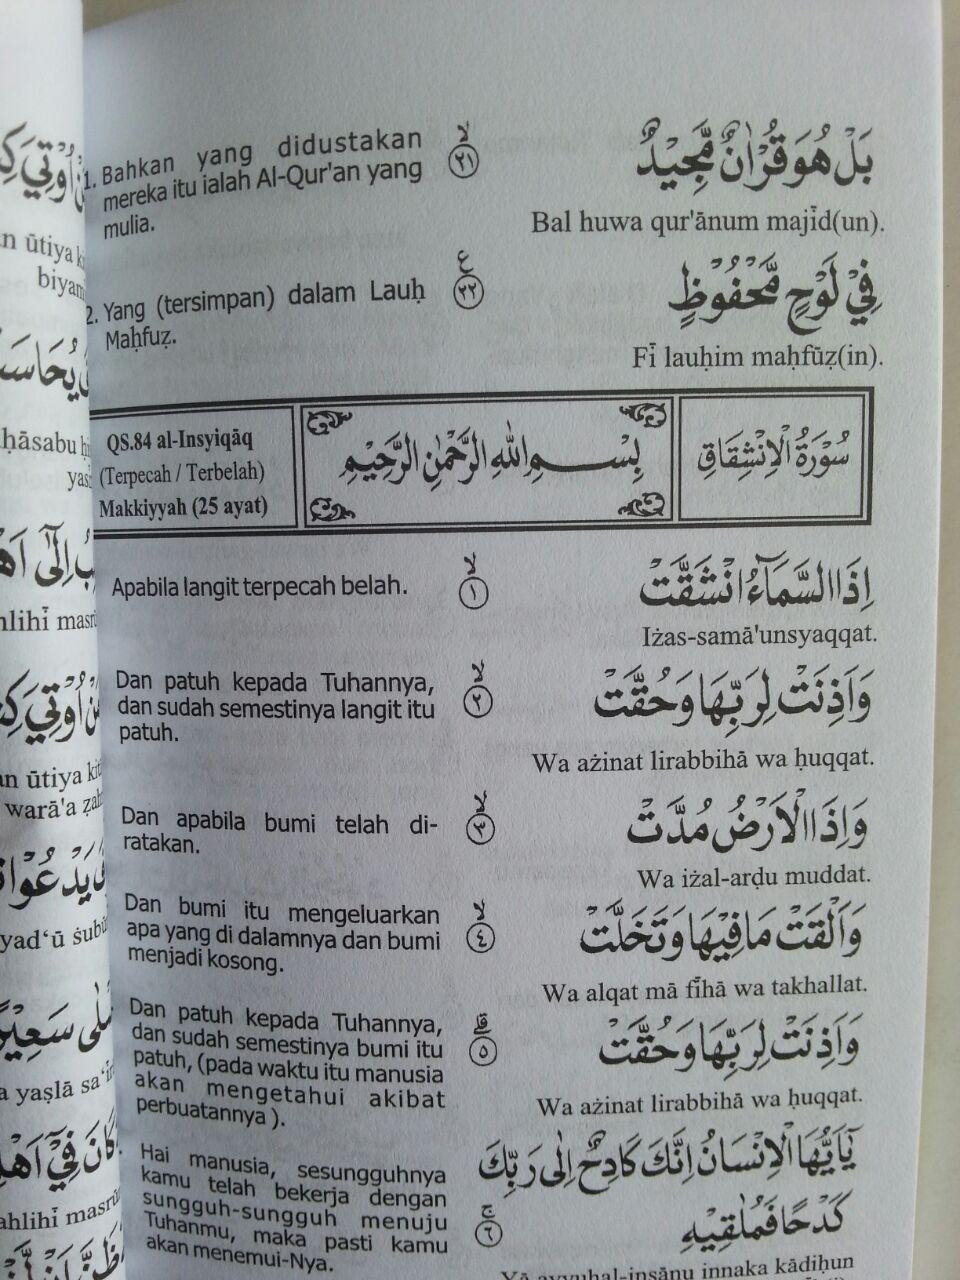 بَلْ هُوَ قُرْاٰنٌ مَّجِيْدٌ ۙ ٢١
Bal huwa qur'ānum majīd(un).
1. Bahkan yang didustakan
mereka itu ialah Al-Qur'an yang
mulia.
فِيْ لَوْحٍ مَّحْفُوْظٍ ع ٢٢
Fī lauḥim maḥfūẓ(in).
2. Yang (tersimpan) dalam Lauḥ
Maḥfuẓ.
سُوْرَةُ الْاِنْشِقَاقِ
بِسْمِ اللّٰهِ الرَّحْمٰنِ الرَّحِيْمِ
QS.84 al-Insyiqāq
(Terpecah / Terbelah)
Makkiyyah (25 ayat)
اِذَا السَّمَاۤءُ انْشَقَّتْ ۙ ١
Iżas-samā'unsyaqqat.
Apabila langit terpecah belah.
وَاَذِنَتْ لِرَبِّهَا وَحُقَّتْ ۙ ٢
Wa ażinat lirabbihā wa ḥuqqat.
Dan patuh kepada Tuhannya,
dan sudah semestinya langit itu
patuh.
وَاِذَا الْاَرْضُ مُدَّتْ ۙ ٣
Wa iżal-arḍu muddat.
Dan apabila bumi telah di-
ratakan.
وَاَلْقَتْ مَا فِيْهَا وَتَخَلَّتْ ۙ ٤
Wa alqat mā fīhā wa takhallat.
Dan bumi itu mengeluarkan
apa yang di dalamnya dan bumi
menjadi kosong.
وَاَذِنَتْ لِرَبِّهَا وَحُقَّتْ ۗ ٥
Wa ażinat lirabbihā wa ḥuqqat.
Dan patuh kepada Tuhannya,
dan sudah semestinya bumi itu
patuh, (pada waktu itu manusia
akan mengetahui akibat
perbuatannya ).
يٰٓاَيُّهَا الْاِنْسَانُ اِنَّكَ كَادِحٌ اِلٰى رَبِّكَ
كَدْحًا فَمُلٰقِيْهِ ۚ ٦
Yā ayyuhal-insānu innaka kādiḥun
Hai manusia, sesungguhnya
kamu telah bekerja dengan
sungguh-sungguh menuju
Tuhanmu, maka pasti kamu
akan menemui-Nya.